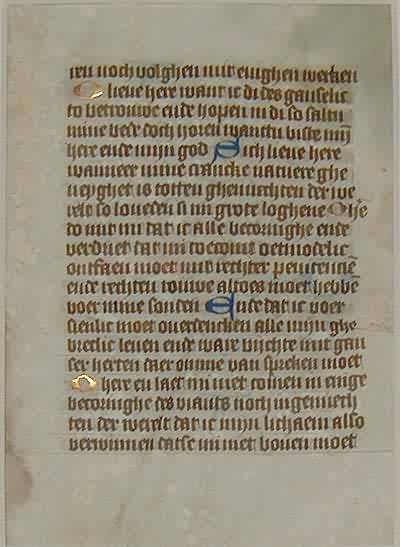 ren noch volghen mit enighen wercken
O lieue here want ic di des ganselic
to betrouwe ende hopen in di so saltu
mine bede doch horen wantu biste mijn
here ende mijn god Sich lieue here
wanneer mine crancke natuere ghe
neyghet is totten ghenuechten der we
relt so loueden si mi grote loghene Ghe
do mit mi dat ic alle becoringhe ende
verdriet dat mi toecomt oetmodelic
ontfaen moet mit rechter penitencie
ende rechten rouwe altoes moet hebbe
voer mine sonden Ende dat ic voer
sienlic moet ouerdencken alle mijn ghe
breclic leuen ende ware bijchte mit gan
ser herten daer omme van spreken moet
O here en laet mi niet comen in enige
becoringhe des viants noch in genuech
ten der werelt dat ic mijn lichaem also
verwinnen datse mi niet bouen moet